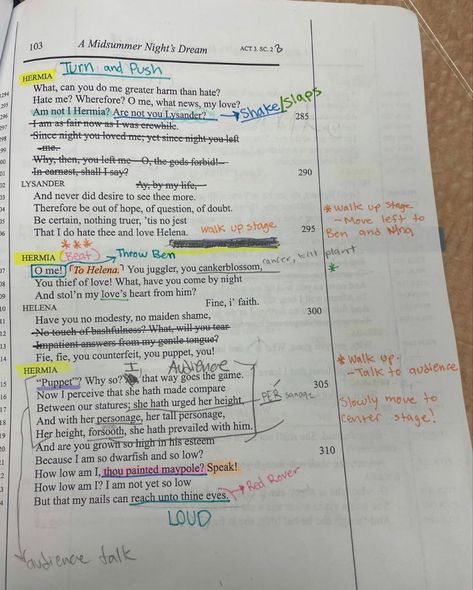 103 A Midsummer Night's Dream ACT 3. SC. 2 B
HERMIA Turn and Push
What, can you do me greater harm than hate?
294
Hate me? Wherefore? O me, what news, my love?
295
Am not I Hermia? Are not you Lysander? → Shake/Slaps 285
296
I am as fair now as I was erewhile.
Since night you loved me; yet since night you left
me.
Why, then, you left me—O, the gods forbid!—
In earnest, shall I say? 290
LYSANDER Ay, by my life,
And never did desire to see thee more.
Therefore be out of hope, of question, of doubt.
Be certain, nothing truer, 'tis no jest
That I do hate thee and love Helena. walk up stage 295
* walk up stage
- Move left to
Ben and Nina
***
HERMIA (Beat) → Throw Ben
O me! [To Helena.] You juggler, you cankerblossom, cancer, kill plant
*
You thief of love! What, have you come by night
And stol'n my love's heart from him?
HELENA Fine, i' faith.
Have you no modesty, no maiden shame, 300
No touch of bashfulness? What, will you tear
Impatient answers from my gentle tongue?
Fie, fie, you counterfeit, you puppet, you!
HERMIA I Audience
"Puppet"? Why so? that way goes the game.
Now I perceive that she hath made compare 305
Between our statures; she hath urged her height,
And with her personage, her tall personage,
PER
Her height, forsooth, she hath prevailed with him.
And are you grown so high in his esteem
Because I am so dwarfish and so low? 310
How low am I, thou painted maypole? Speak!
How low am I? I am not yet so low
But that my nails can reach unto thine eyes. → Red Rover
LOUD
* Walk up.
- Talk to audience
Slowly move to
center stage!
audience talk